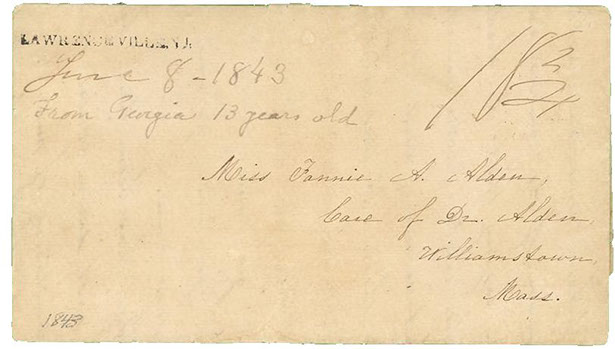 LAWRENCEVILLE N.J.
June 8 - 1843
18 3/4
From Georgia 13 years old
Miss Fannie A. Alden,
Care of Dr. Alden,
Williamstown,
Mass.
1843